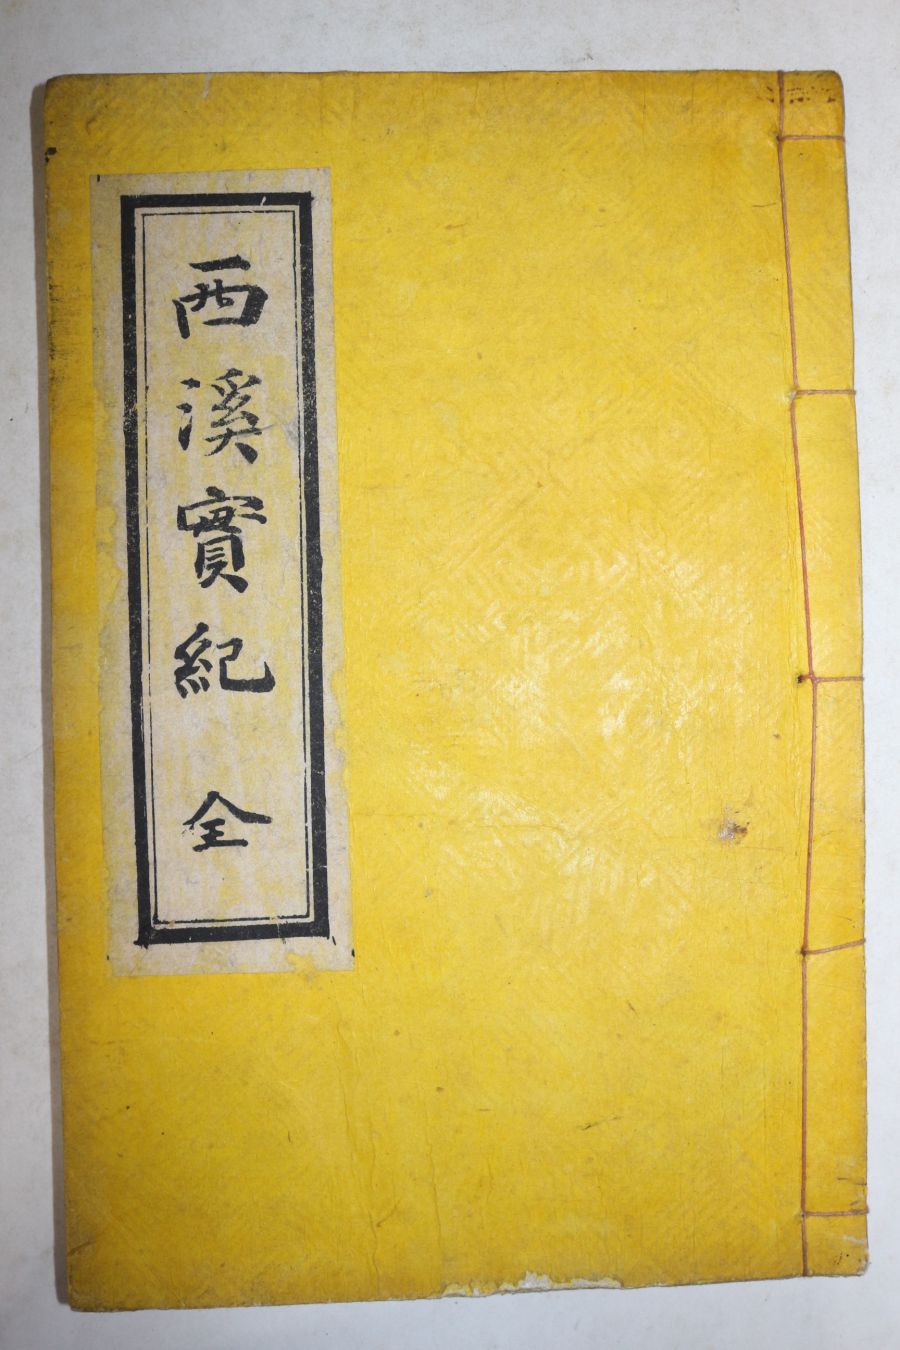 西溪實紀 全